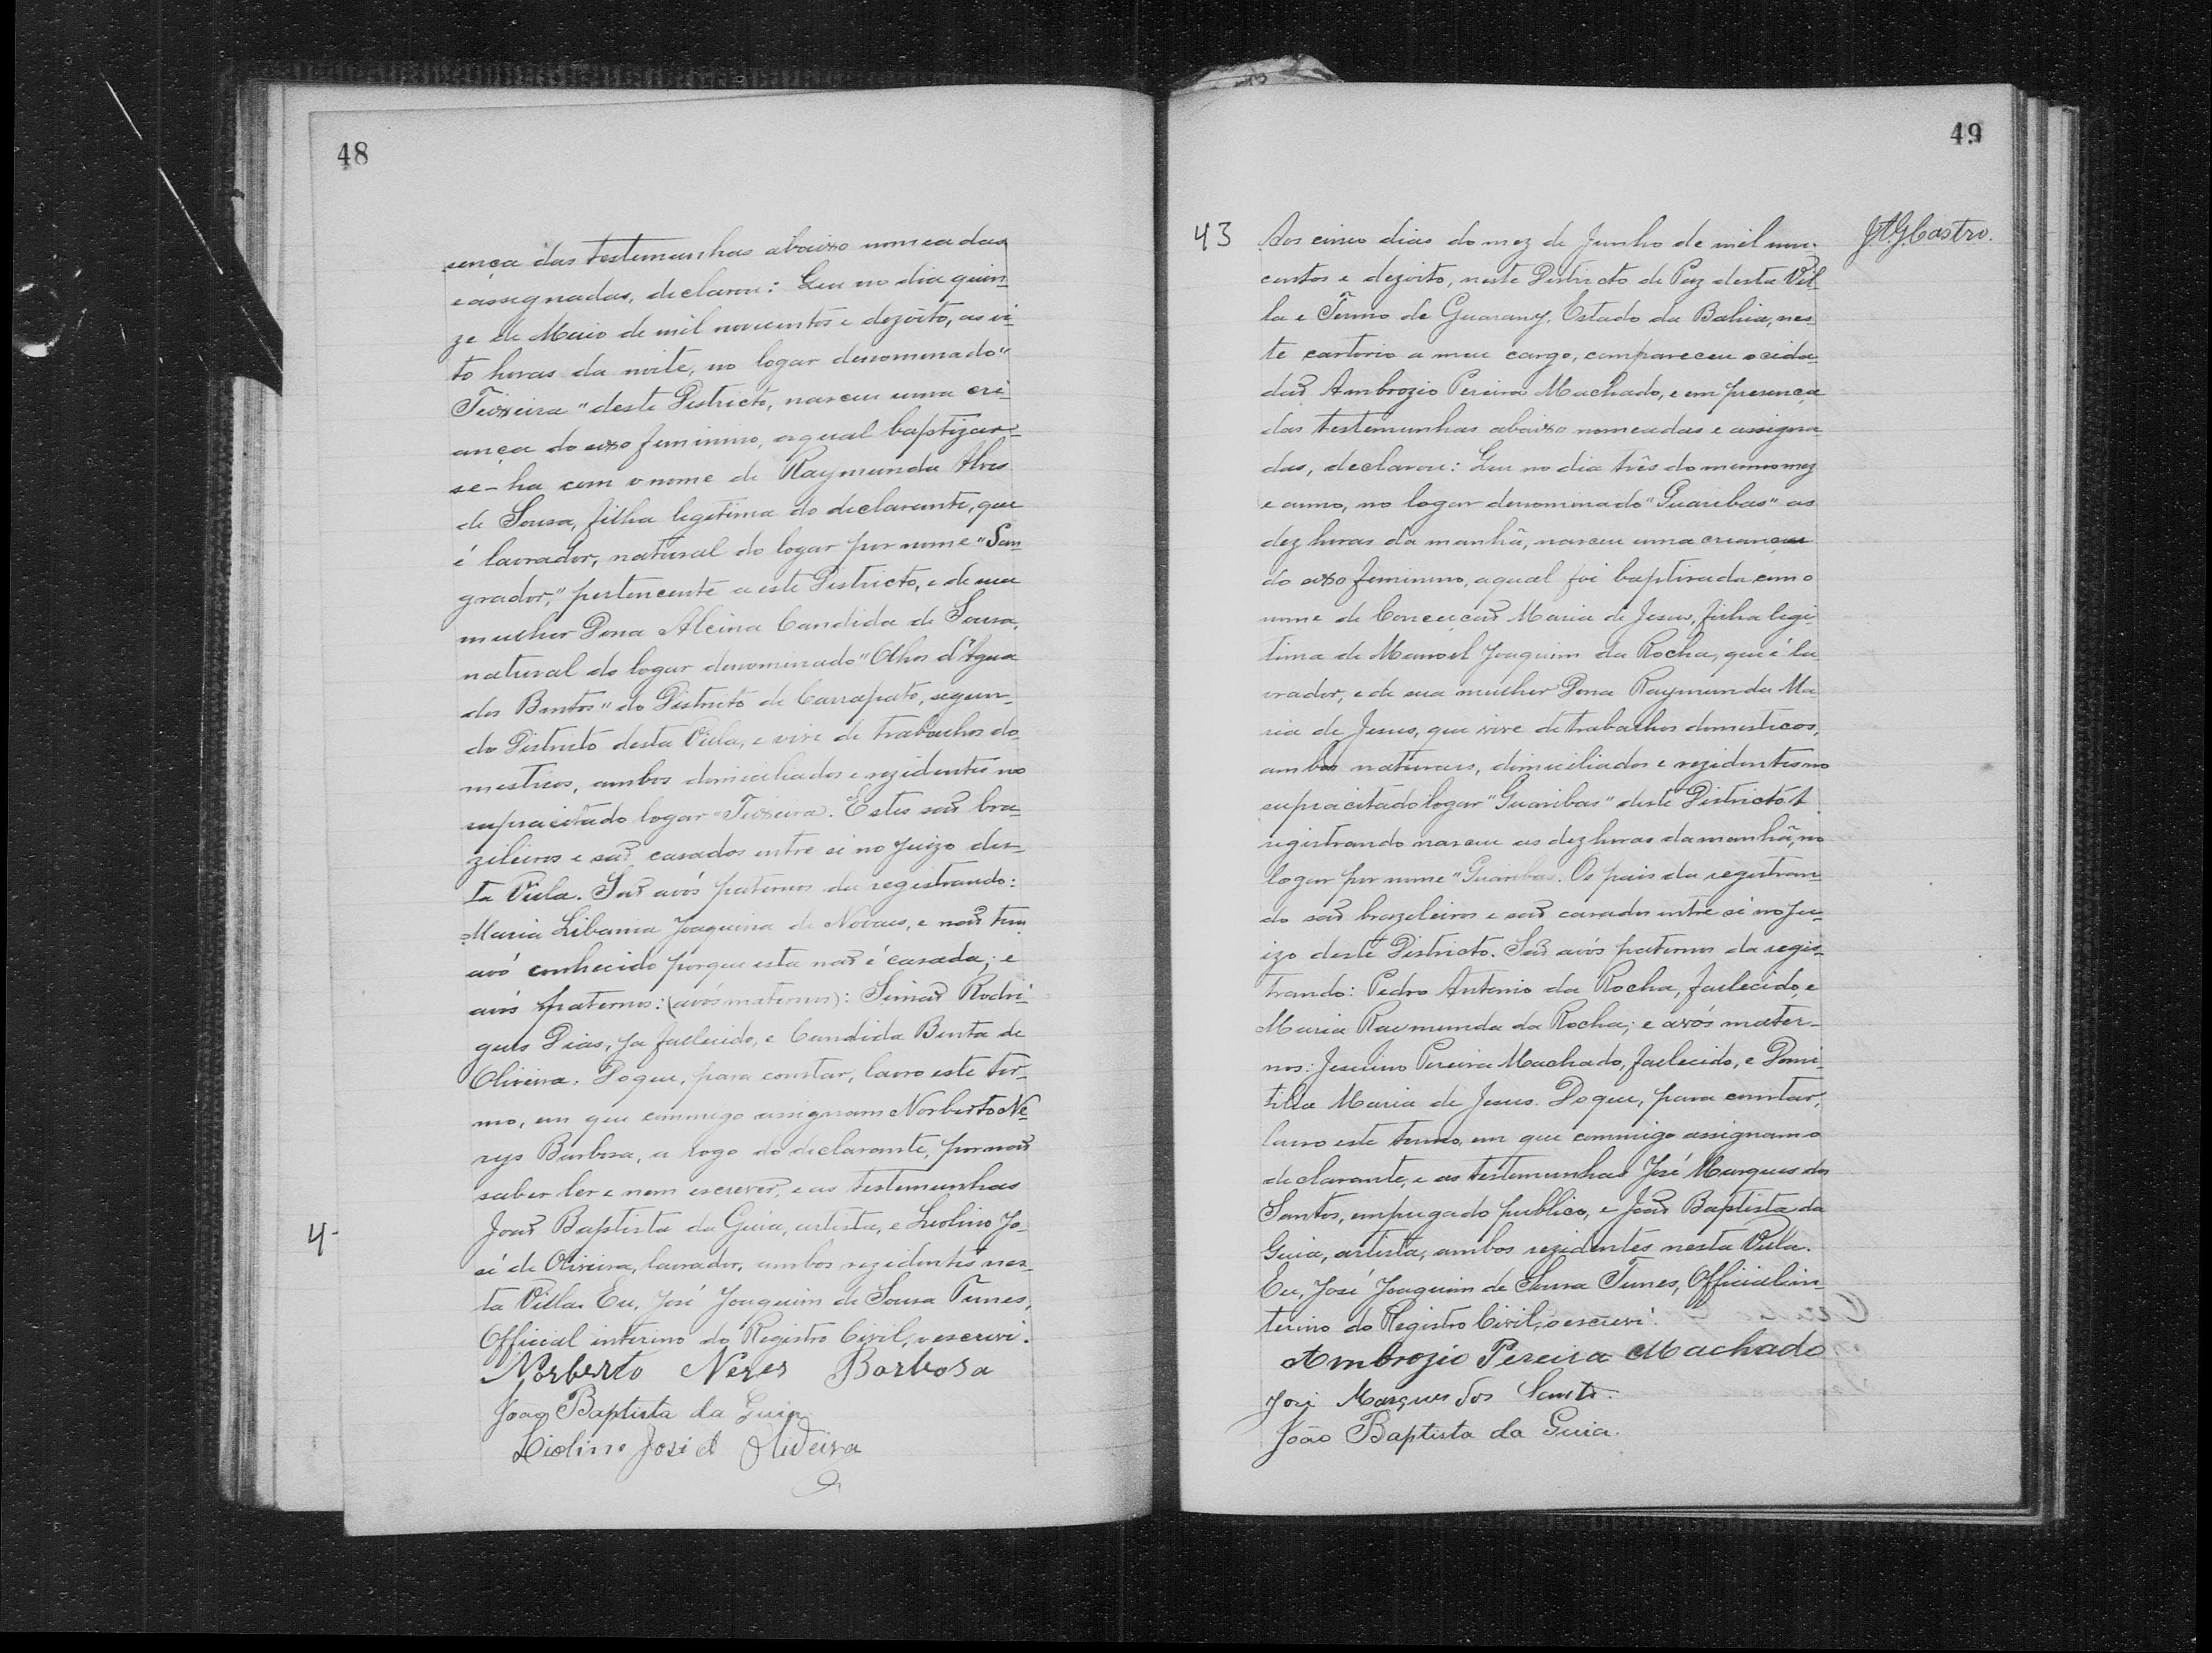 48
sença das testemunhas abaixo nomeadas
e assignadas, declarou: Que no dia quin-
ze de Maio de mil novecentos e dezoito, as oi-
to horas da noite, no logar denominado "
Teixeira" deste Districto, nasceu uma cri-
ança do sexo feminino, a qual baptizar-
se-ha com o nome de Raymunda Alves
de Sousa, filha legitima do declarante, que
é lavrador, natural do logar por nome "San-
grador," pertencente a este Districto, e de sua
mulher Dona Alcina Candida de Sousa,
natural do logar denominado "Olhos d'Agua
dos Bentos" do Districto de Carrapato, segun-
do Districto desta Villa, e vive de trabalhos do-
mesticos, ambos domiciliados e rezidentes no
supracitado logar "Teixeira. Estes são bra-
zileiros e são casados entre si no Juizo des-
ta Villa. São avós paternos da registrando:
Maria Libania Joaquina de Novaes, e não tem
avô conhecido porque esta não é casada; e
avós paternos: (avós maternos): Simão Rodri-
gues Dias, ja fallecido, e Candida Benta de
Oliveira. Do que, para constar, lavro este ter-
mo, em que commigo assignam Norberto Ne-
rys Barbosa, a rogo do declarante, por não
saber ler e nem escrever, e as testemunhas
João Baptista da Guia, artista, e Liolino Jo-
4-
sé de Oliveira, lavrador, ambos rezidentes nes-
ta Villa. Eu, José Joaquim de Sousa Tunes,
Official interino do Registro Civil, o escrevi.
Norberto Neres Barbosa
João Baptista da Guia
Liolino José d Oliveira
49
43
J.A.G. Castro.
Aos cinco dias do mez de Junho de mil nove-
centos e dezoito, neste Districto de Paz desta Vil-
la e Termo de Guarany, Estado da Bahia, nes-
te cartorio a meu cargo, compareceu o cida-
dão Ambrozio Pereira Machado, e em presença
das testemunhas abaixo nomeadas e assigna-
das, declarou: Que no dia três do mesmo mez
e anno, no logar denominado "Guaribas" as
dez horas da manhã, nasceu uma creança
do sexo feminino, a qual foi baptisada com o
nome de Conceicão Maria de Jesus, filha legi-
tima de Manoel Joaquim da Rocha, que é la-
vrador, e de sua mulher Dona Raymunda Ma-
ria de Jesus, que vive de trabalhos domesticos,
ambos naturaes, domiciliados e rezidentes no
supracitado logar "Guaribas" deste Districto. A
registrando nasceu as dez horas da manhã, no
logar por nome "Guaribas. Os pais da registran-
do são brazileiros e são casados entre si no Ju-
izo deste Districto. São avós paternos da regis-
trando: Pedro Antonio da Rocha, fallecido, e
Maria Raimunda da Rocha; e avós mater-
nos: Jesuino Pereira Machado, fallecido, e Domi-
tilia Maria de Jesus. Do que, para constar,
lavro este termo, em que commigo assignam o
declarante, e as testemunhas José Marques dos
Santos, empregado publico, e João Baptista da
Guia, artista, ambos rezidentes nesta Villa.
Eu, José Joaquim de Sousa Tunes, Official in-
terino do Registro Civil, o escrevi.
Ambrozio Pereira Machado
José Marques dos Santos.
João Baptista da Guia.